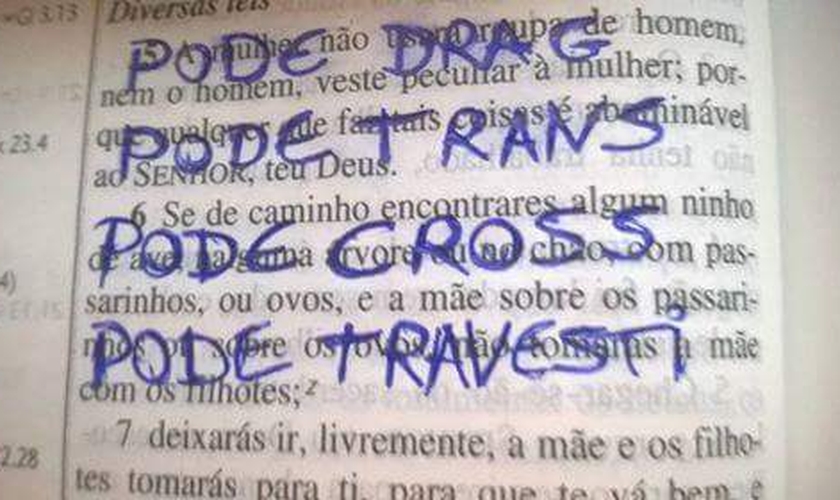 =Q 3.13
Diversas leis
5 A mulher não usará roupa de homem,
PODE DRAG
nem o homem, veste peculiar à mulher; por-
que qualquer que faz tais coisas é abominável
PODE TRANS
ao SENHOR, teu Deus.
23.4
6 Se de caminho encontrares algum ninho
PODE CROSS
de ave, nalguma árvore ou no chão, com pas-
4)
sarinhos, ou ovos, e a mãe sobre os passari-
nhos ou sobre os ovos, não tomarás a mãe
PODE TRAVESTI
com os filhotes; z
7 deixarás ir, livremente, a mãe e os filho-
2.28
tes tomarás para ti, para que te vá bem e